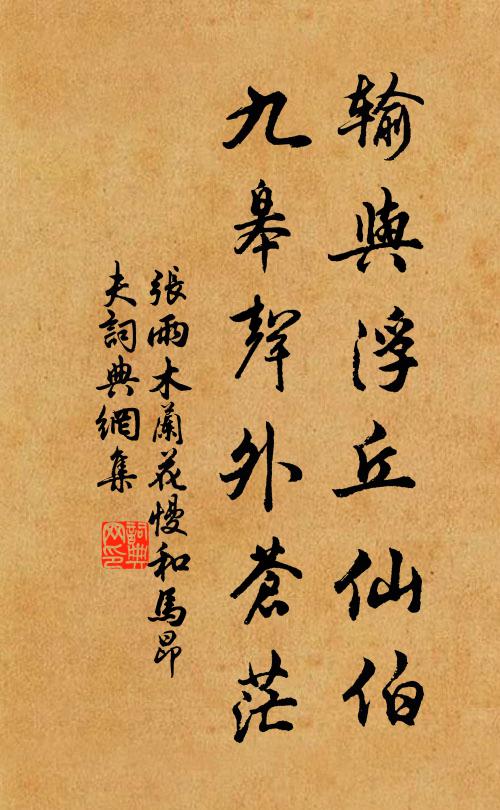 輸與浮丘仙伯
九皋聲外蒼茫
張雨木蘭花慢和馬昂
夫詞典網集
詞典網印